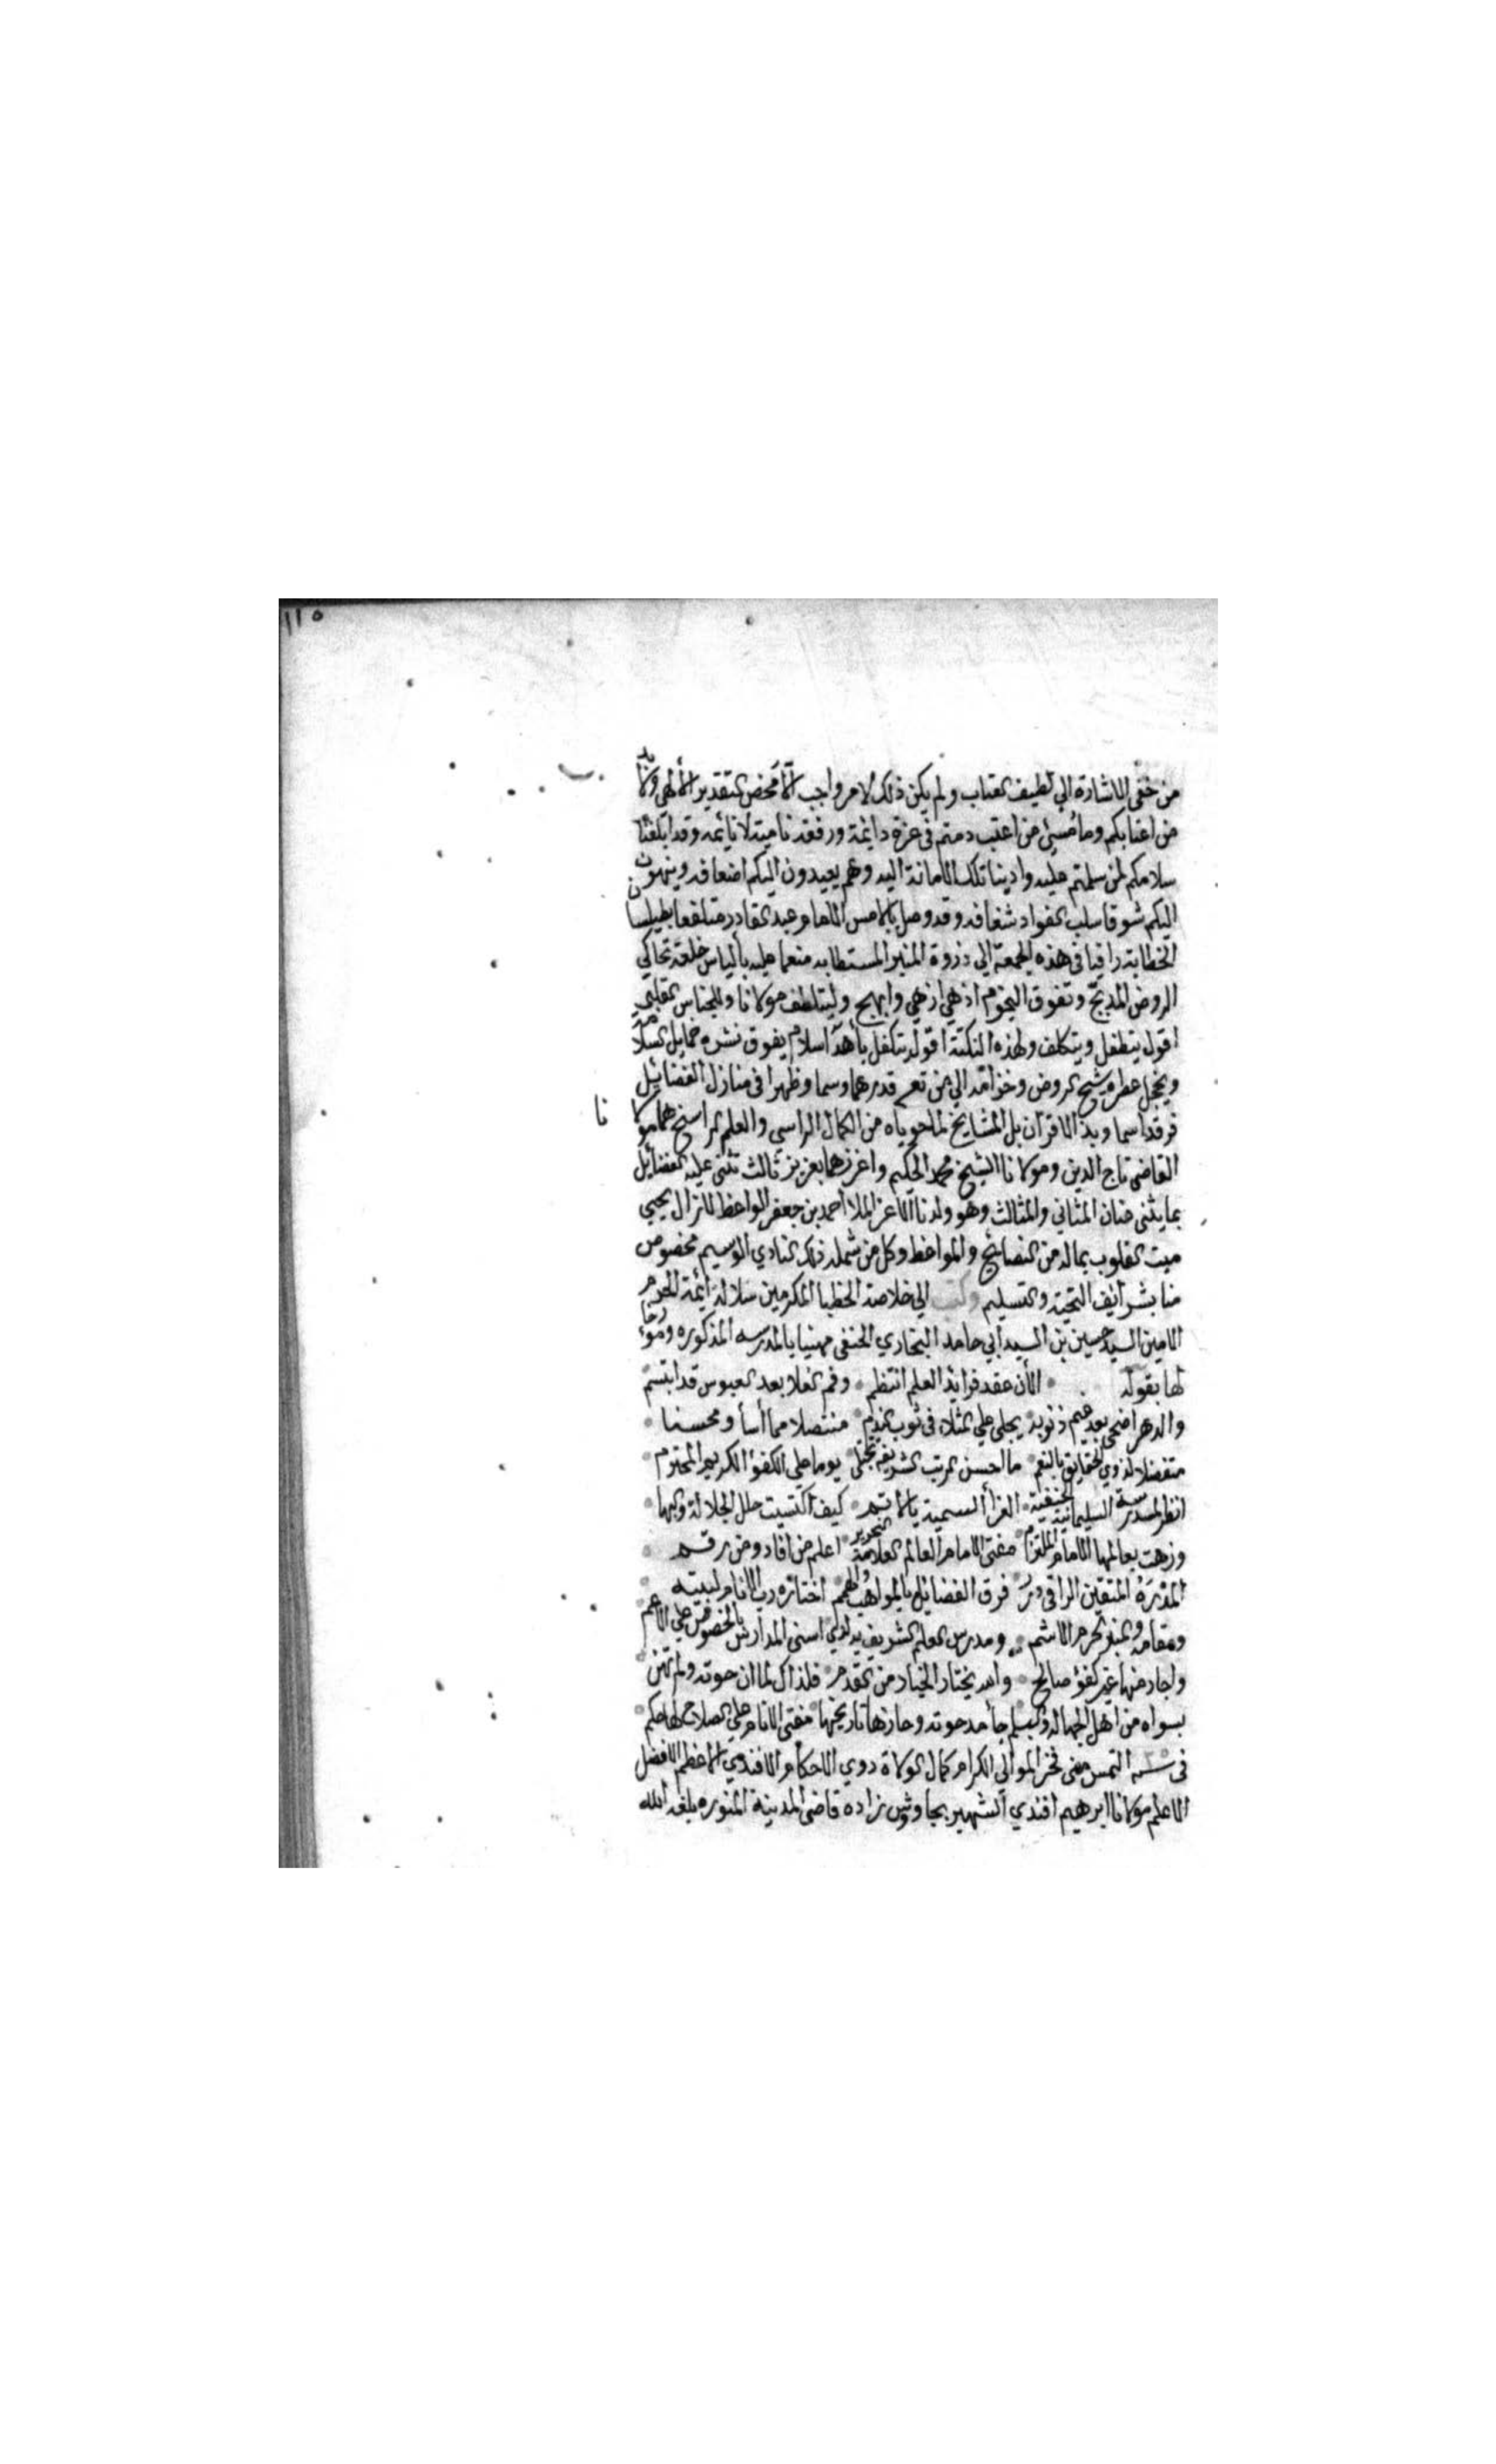 ١١٥
من خفي الاشارة الي لطيف العتاب ولم يكن ذلك لامر واجب الا محض التقدير الالهي ولابد
من اعتابكم وما مسيئ من اعتب دمتم في عزة دائمة ورفعة نامية لا نائمه وقد ابلغنا
سلامكم لمن سلمتم عليه وادينا تلك الامانة اليه وهم يعيدون اليكم اضعافه وينهون
اليكم شوقا سلب الفواد شغافه وقد وصل بالامس الامام عبد القادر متلفعا بطيلسان
الخطابة راقيا في هذه الجمعة الي ذروة المنبر المستطابه منعما عليه بألباس خلعة تحاكي
الروض المدبج وتفوق النجوم اذ هي ازهي وابهج وليتلطف مولانا وللجناس القلبي
اقول يتطفل ويتكلف ولهذه النكتة اقول يتكفل بأهدآ سلام يفوق نشره خمايل السلام
ويخجل عطره شيح الروض وخزامه الي من قدرهما وسما وظهرا في منازل الفضائل
فرقدا سما وبذ الاقران بل المشايخ لما حوياه من الكمال الراسي والعلم الراسخ هما مولانا
القاضي تاج الدين ومولانا الشيخ محمد الحكيم واعززهما بعزيز ثالث تثني عليه الفضائل
بما يثني عنان المثاني والمثالث وهو ولدنا الاعز الملا احمد بن جعفر الواعظ لازال يحيي
ميت القلوب بماله من النصائح والمواعظ وكل من شمله ذلك النادي الوسيم مخصوص
منا بشرائف التحية والتسليم وكتب الي خلاصة الخطبا المكرمين سلالة ائمة الحرم
الامين السيد حسين بن السيد ابي حامد البخاري الحنفي مهنيا بالمدرسه المذكوره ومؤرخا
لها بقوله الأن عقد فرائد العلم انتظم وفم العلا بعد العبوس قد ابتسم
والدهر اضحي بعد ذنوبه يجلي علي في ثوب الندم متنصلا مما أسأ ومحسنا
متفضلا لذوي الحقايق بالنعم ما احسن الرتب الشريفة تجتلي يوما علي الكفؤ الكريم المحترم
انظر لمدرسة السليمانية الحنفية الغرأ السمية كيف اكتسيت حلل الجلالة والبها
وزهت بعالمها الامام مفتي الامام العالم العلامة النحرير اعلم من افاد ومن رقم
المتقين الراقي فرق الفضائل بالمواهب والهمم اختاره رب الانام لبيته
ومقامه والمنبر الحرم الاشم ومدرس العلم الشريف اسني المدارس بالخصوص علي الاعم
واجاد منها غير كفؤ صالح والله يختار الخيار من القدم فلذاك لما ان حوته ولم تهن
بسواه من اهل الجهاله وحازها تاريخها مفتي الانام علي الصلاح لها حكم
في سنه التمس مني فخر الموالي الكرام كمال الولاة ذوي الاحكام الافندي الاعظم الافضل
الاعلم مولانا ابرهيم افندي الشهير بجاوش زاده قاضي المدينة المنوره بلغه الله